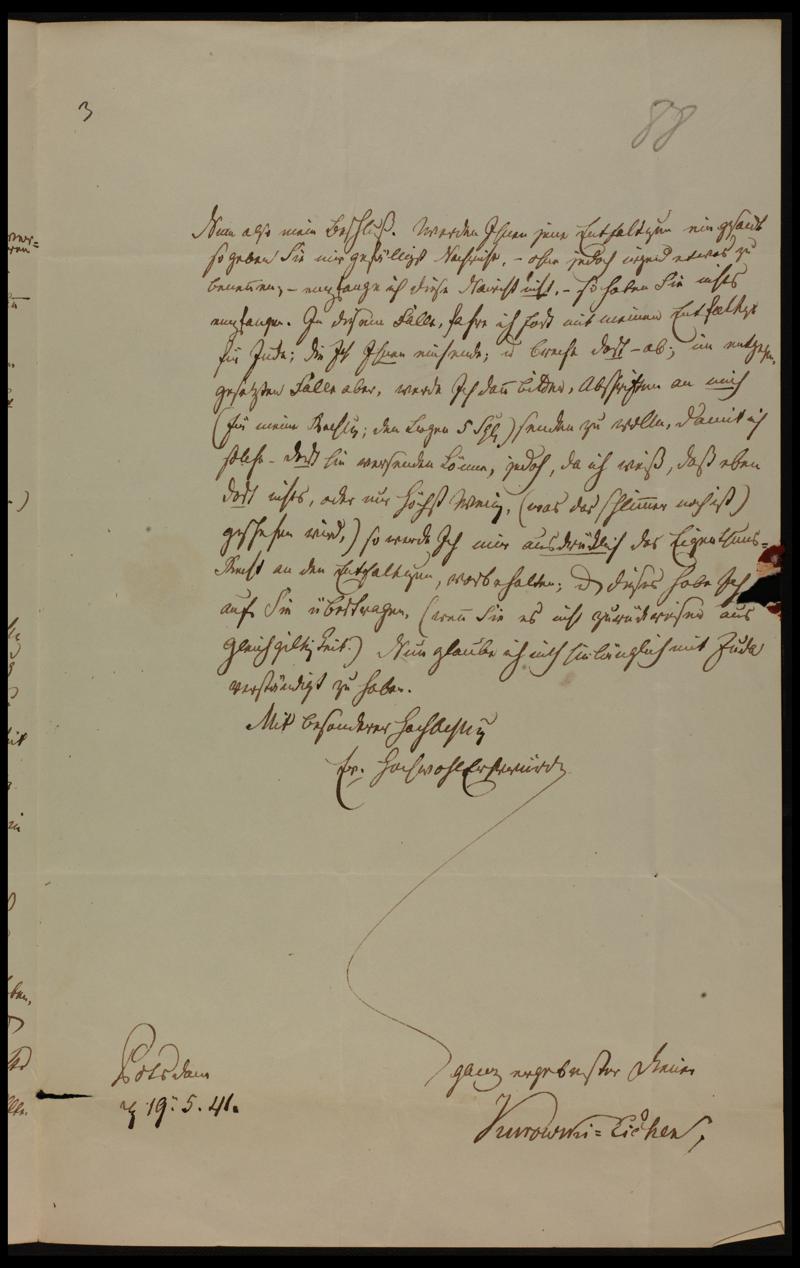 3
88
Nun also mein Beschluß. Werden Ihnen jene Entfaltgen eingesandt
so geben Sie mir gefälligst Nachricht, – ohne jedoch irgend etwas zu
benennen, – empfange ich diese Nachricht nicht, – so haben Sie nichts
empfangen. In diesem Falle, fahre ich fort mit meinen Entfaltgn
für Jude; die Ich Ihnen einsende; u breche dort – ab; im entgegen-
gesetzten Falle aber, werde Ich dann bitten, Abschriften an mich
(für meine Rechng; den Bogen 5 Sgl) senden zu wollen, damit ich
solche – dorthin versenden könne, jedoch, da ich weiß, daß eben
dort nichts, oder nur höchst wenig, (was das schlimmer noch ist)
geschehen wird,) so werde Ich mir ausdrücklich das Eigenthums-
Recht an den Entfaltgen, vorbehalten; dieses habe Ich
auf Sie übertragen, (wenn Sie es nicht zurückweisen aus
Gleichgiltigkeit.) Nun glaube ich mich hinlänglich mit Jude
verständigt zu haben.
Mit besonderer Hochachtg
Ew. Hochwohl
ganz ergebenster
Potsdam
19. 5. 41.
Kurowski-Eichen,